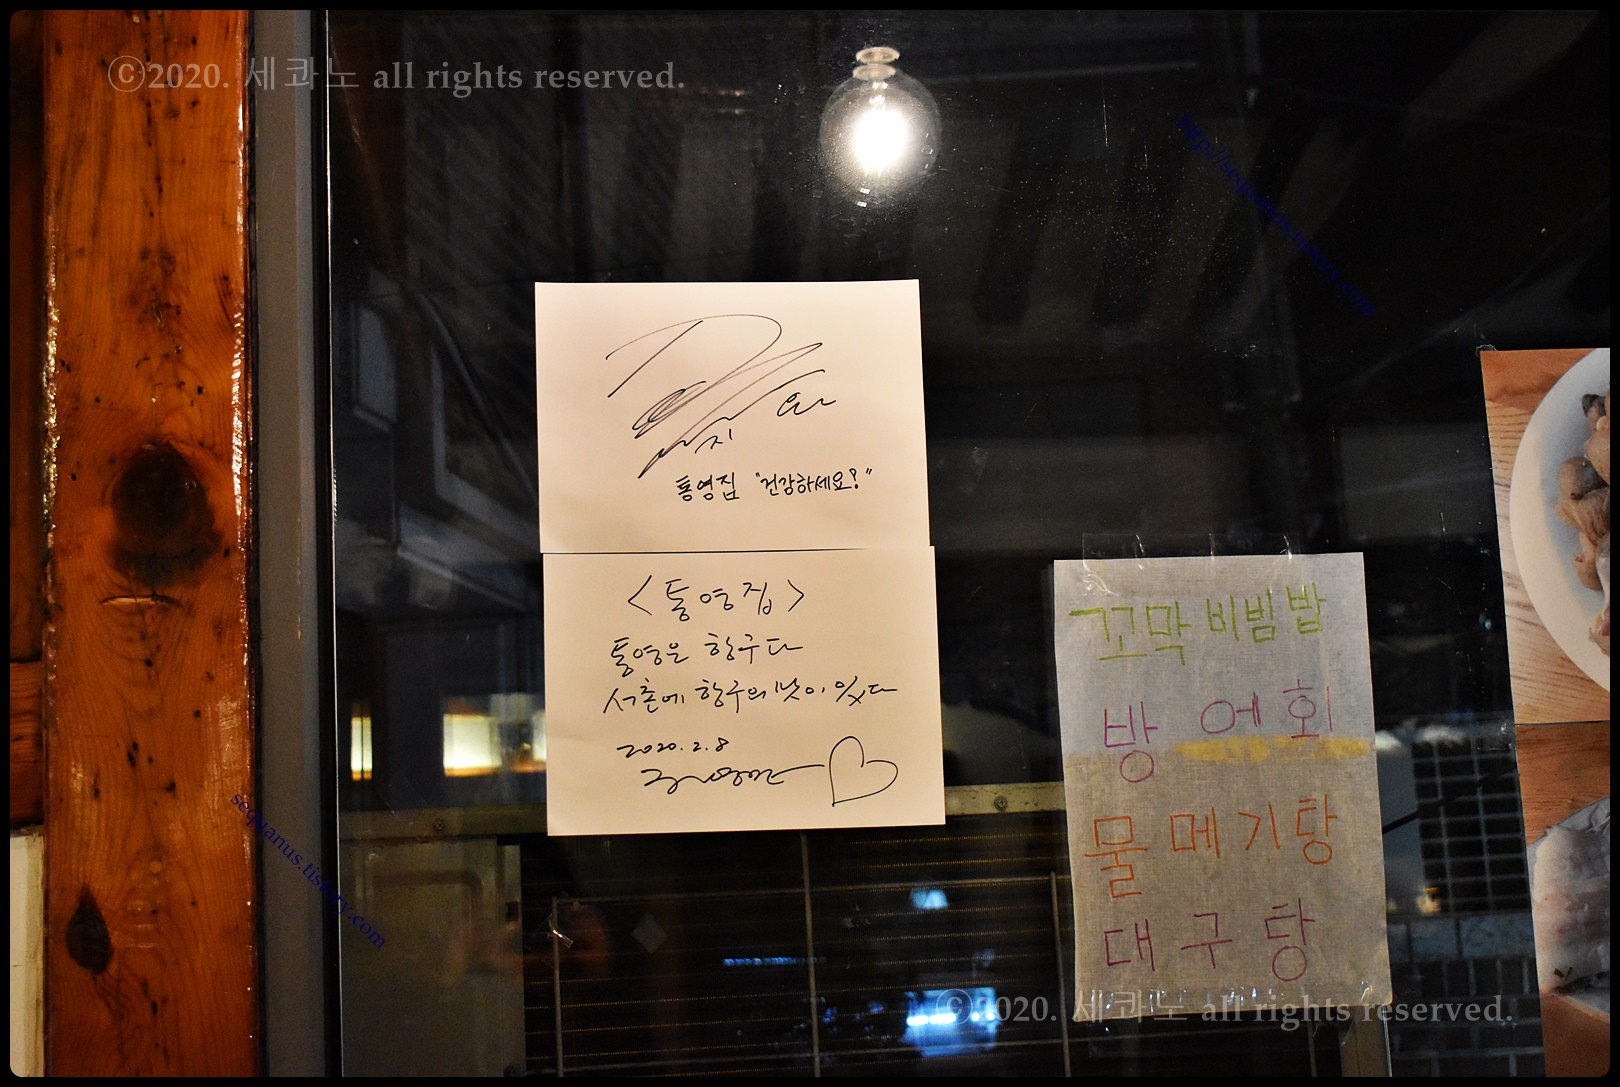 ⓒ2020. 세콰노 all rights reserved.
http://sequanus.tistory.com
통영집 "건강하세요!"
<통영집>
통영은 항구다
서촌에 항구의 맛이 있다
2020. 2. 8
꼬막비빔밥
방어회
물메기탕
대구탕
sequanus.tistory.com
ⓒ2020. 세콰노 all rights reserved.